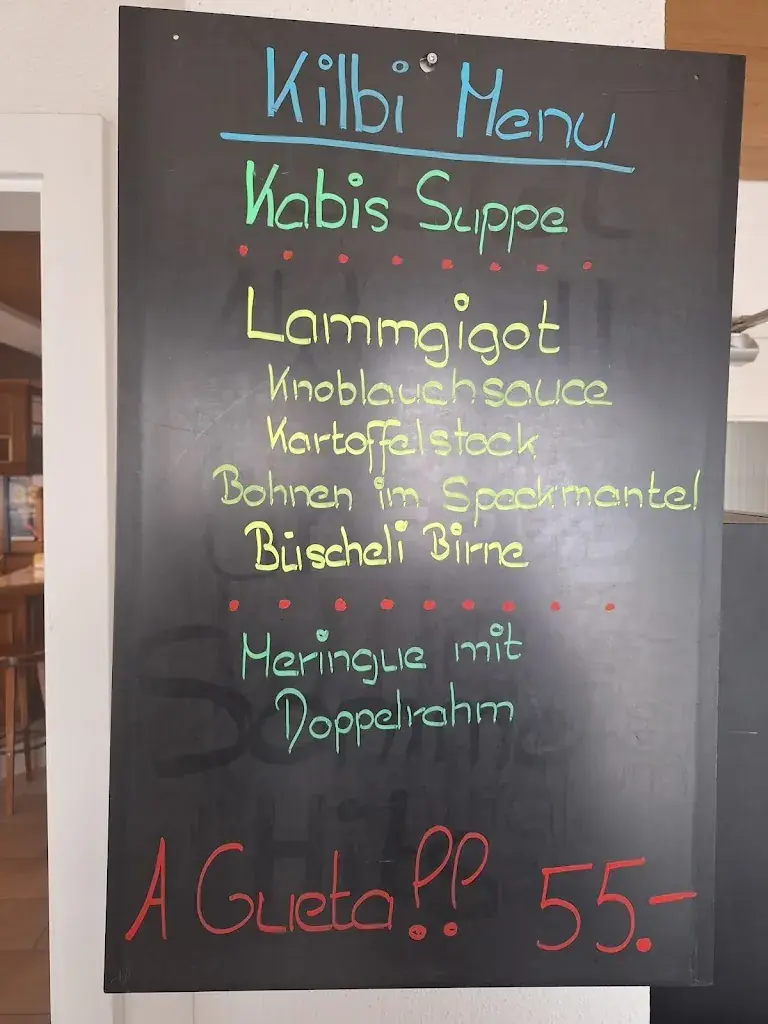 Kilbi Menu
Kabis Suppe
Lammgigot
Knoblauchsauce
Kartoffelstock
Bohnen im Speckmantel
Büscheli Birne
Meringue mit
Doppelrahm
A Gueta!! 55.-